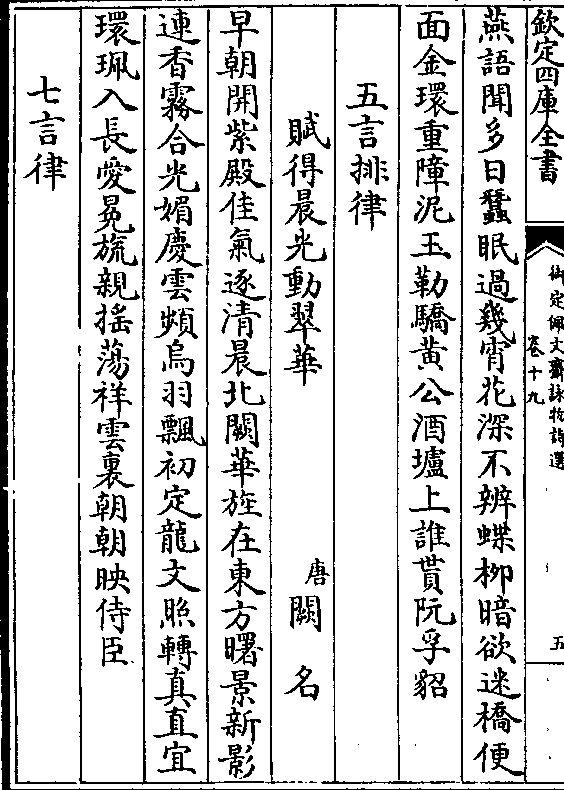 欽定四庫全書
御定佩文齋詠物詩選
卷十九
五
燕語聞多日蠶眠過幾宵花深不辨蝶柳暗欲迷橋便
面金環重障泥玉勒驕黃公酒壚上誰貰阮孚貂
五言排律
賦得晨光動翠華
唐闕名
早朝開紫殿佳氣逐清晨北闕華旌在東方曙景新影
連香霧合光媚慶雲頻鳥羽飄初定龍文照轉真直宜
環珮入長愛冕旒親搖蕩祥雲裏朝朝映侍臣
七言律